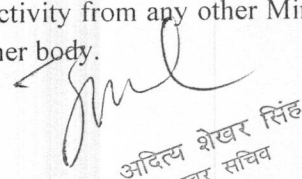 ctivity from any other Mi
er body.
अदित्य शेखर सिंह
सचिव